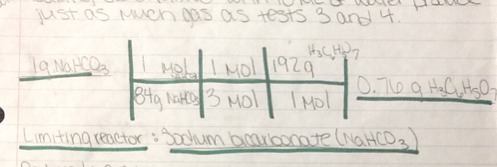 just as much gas as tests 3 and 4.
1g NaHCO3 | 1 mol | 1 mol | 192g H3C6H5O7 | 0.76 g H3C6H5O7
84g NaHCO3 | 3 mol | 1 mol
Limiting reactor : Sodium bicarbonate (NaHCO3)